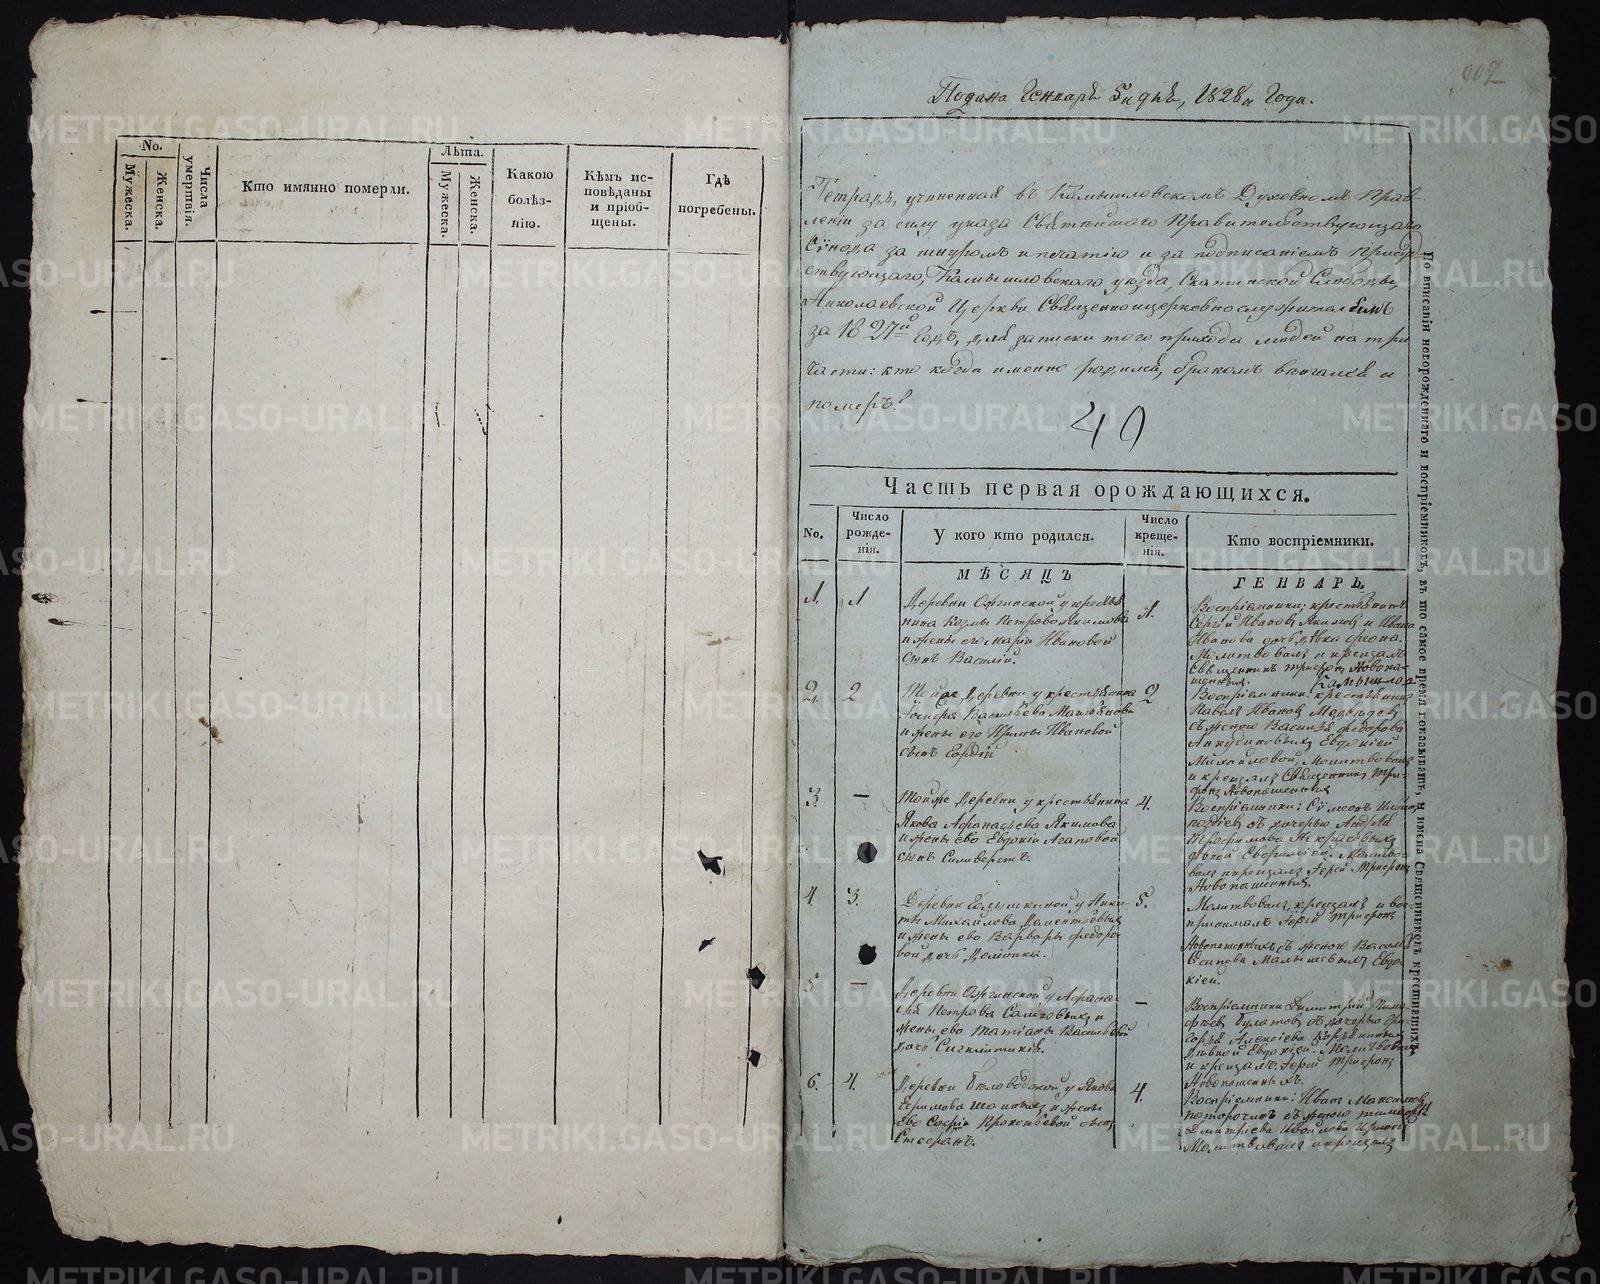 No.
Мужеска.
Женска.
Числа умертвія.
Кто имянно померли.
Лѣта.
Мужеска.
Женска.
Какою
болѣз-
нію.
Кѣмъ ис-
повѣданы
и пріоб-
щены.
Гдѣ
погребены.
Подана Генваря 5 дня, 1828 Года.
Тетрадь, учиненная въ Камышловскомъ Духовномъ Прав-
леніи за силу указа Святѣйшаго Правительствующаго
Сѵнода за шнуромъ и печатію и за подписаніемъ Присут-
ствующаго, Камышловскаго уѣзда, Скатинской Слободы,
Николаевской Церкви Священноцерковнослужителямъ
за 1827й Годъ, для записки того прихода людей на три
части: кто когда именно родился, бракомъ вѣнчался и
померъ?
49
Часть первая орождающихся.
No.
Число
рожде-
нія.
У кого кто родился.
Число
креще-
нія.
Кто воспріемники.
МѢСЯЦЪ
ГЕНВАРЬ.
1. 1
Деревни Ожгинской у крестья
нина Козмы Петрова Якимова
и жены его Маріи Ивановой
сынъ Василій.
1.
Воспріемники: крестьянинъ
Сергій Ивановъ Якимовъ и Ивана
Иванова дочь дѣвка
Молитвовалъ и крещалъ
Священникъ Трифонъ Новопа-
шенныхъ.
2. 2
Тойже Деревни у крестьянина
Васильева
и жены его Ирины Ивановой
сынъ Гордій
2
Воспріемники крестьянинъ
Павелъ Ивановъ Медведевъ
съ женою Василья Федорова
Анкудиновыхъ Евдокіей
Михайловой, Молитвовалъ
и крещалъ Священникъ Три-
фонъ Новопашенныхъ
3. —
Тойже Деревни у крестьянина
Якова Афонасьева Якимова
и жены ево Евдокіи Агаповой
сынъ Силверстъ.
4.
Воспріемники: Сѵмеонъ
съ дочерью Андрея
Трофимова
дѣвкой Молитво-
валъ и крещалъ Іерей Трифонъ
Новопашенныхъ.
4. 3.
Деревни Голышкиной у Ники-
ты Михайлова Дементьевыхъ
и жены ево Варвары Федоро-
вой дочь Домника.
5.
Молитвовалъ, крещалъ и вос-
принималъ Іерей Трифонъ
Новопашенныхъ съ женою Василья
Осипова Малышевыхъ Евдо-
кіей.
5 —
Деревни Ожгинской у Афана-
сья Петрова и
жены ево Татіаны Васильевой
дочь Сигклитикія.
—
Воспріемники Димитрій Тимо-
фѣевъ Булатовъ съ дочерью Гри-
горья Алексѣева
дѣвкой Евдокіей. Молитвовалъ
и крещалъ Іерей Трифонъ
Новопашенныхъ.
6. 4.
Деревни Беловодской у Якова
и жены
ево Софіи Прокопьевой сынъ
Стефанъ.
4.
Воспріемники: Иванъ Максимовъ
съ женою
Дмитріева
Молитвовалъ и крещалъ
По вписаніи новорожденнаго и воспріемниковъ, въ то самое время показывать, и имена Священниковъ крестившихъ.
METRIKI.GASO-URAL.RU